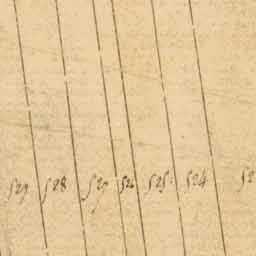 529 528 527 526 525 524 52